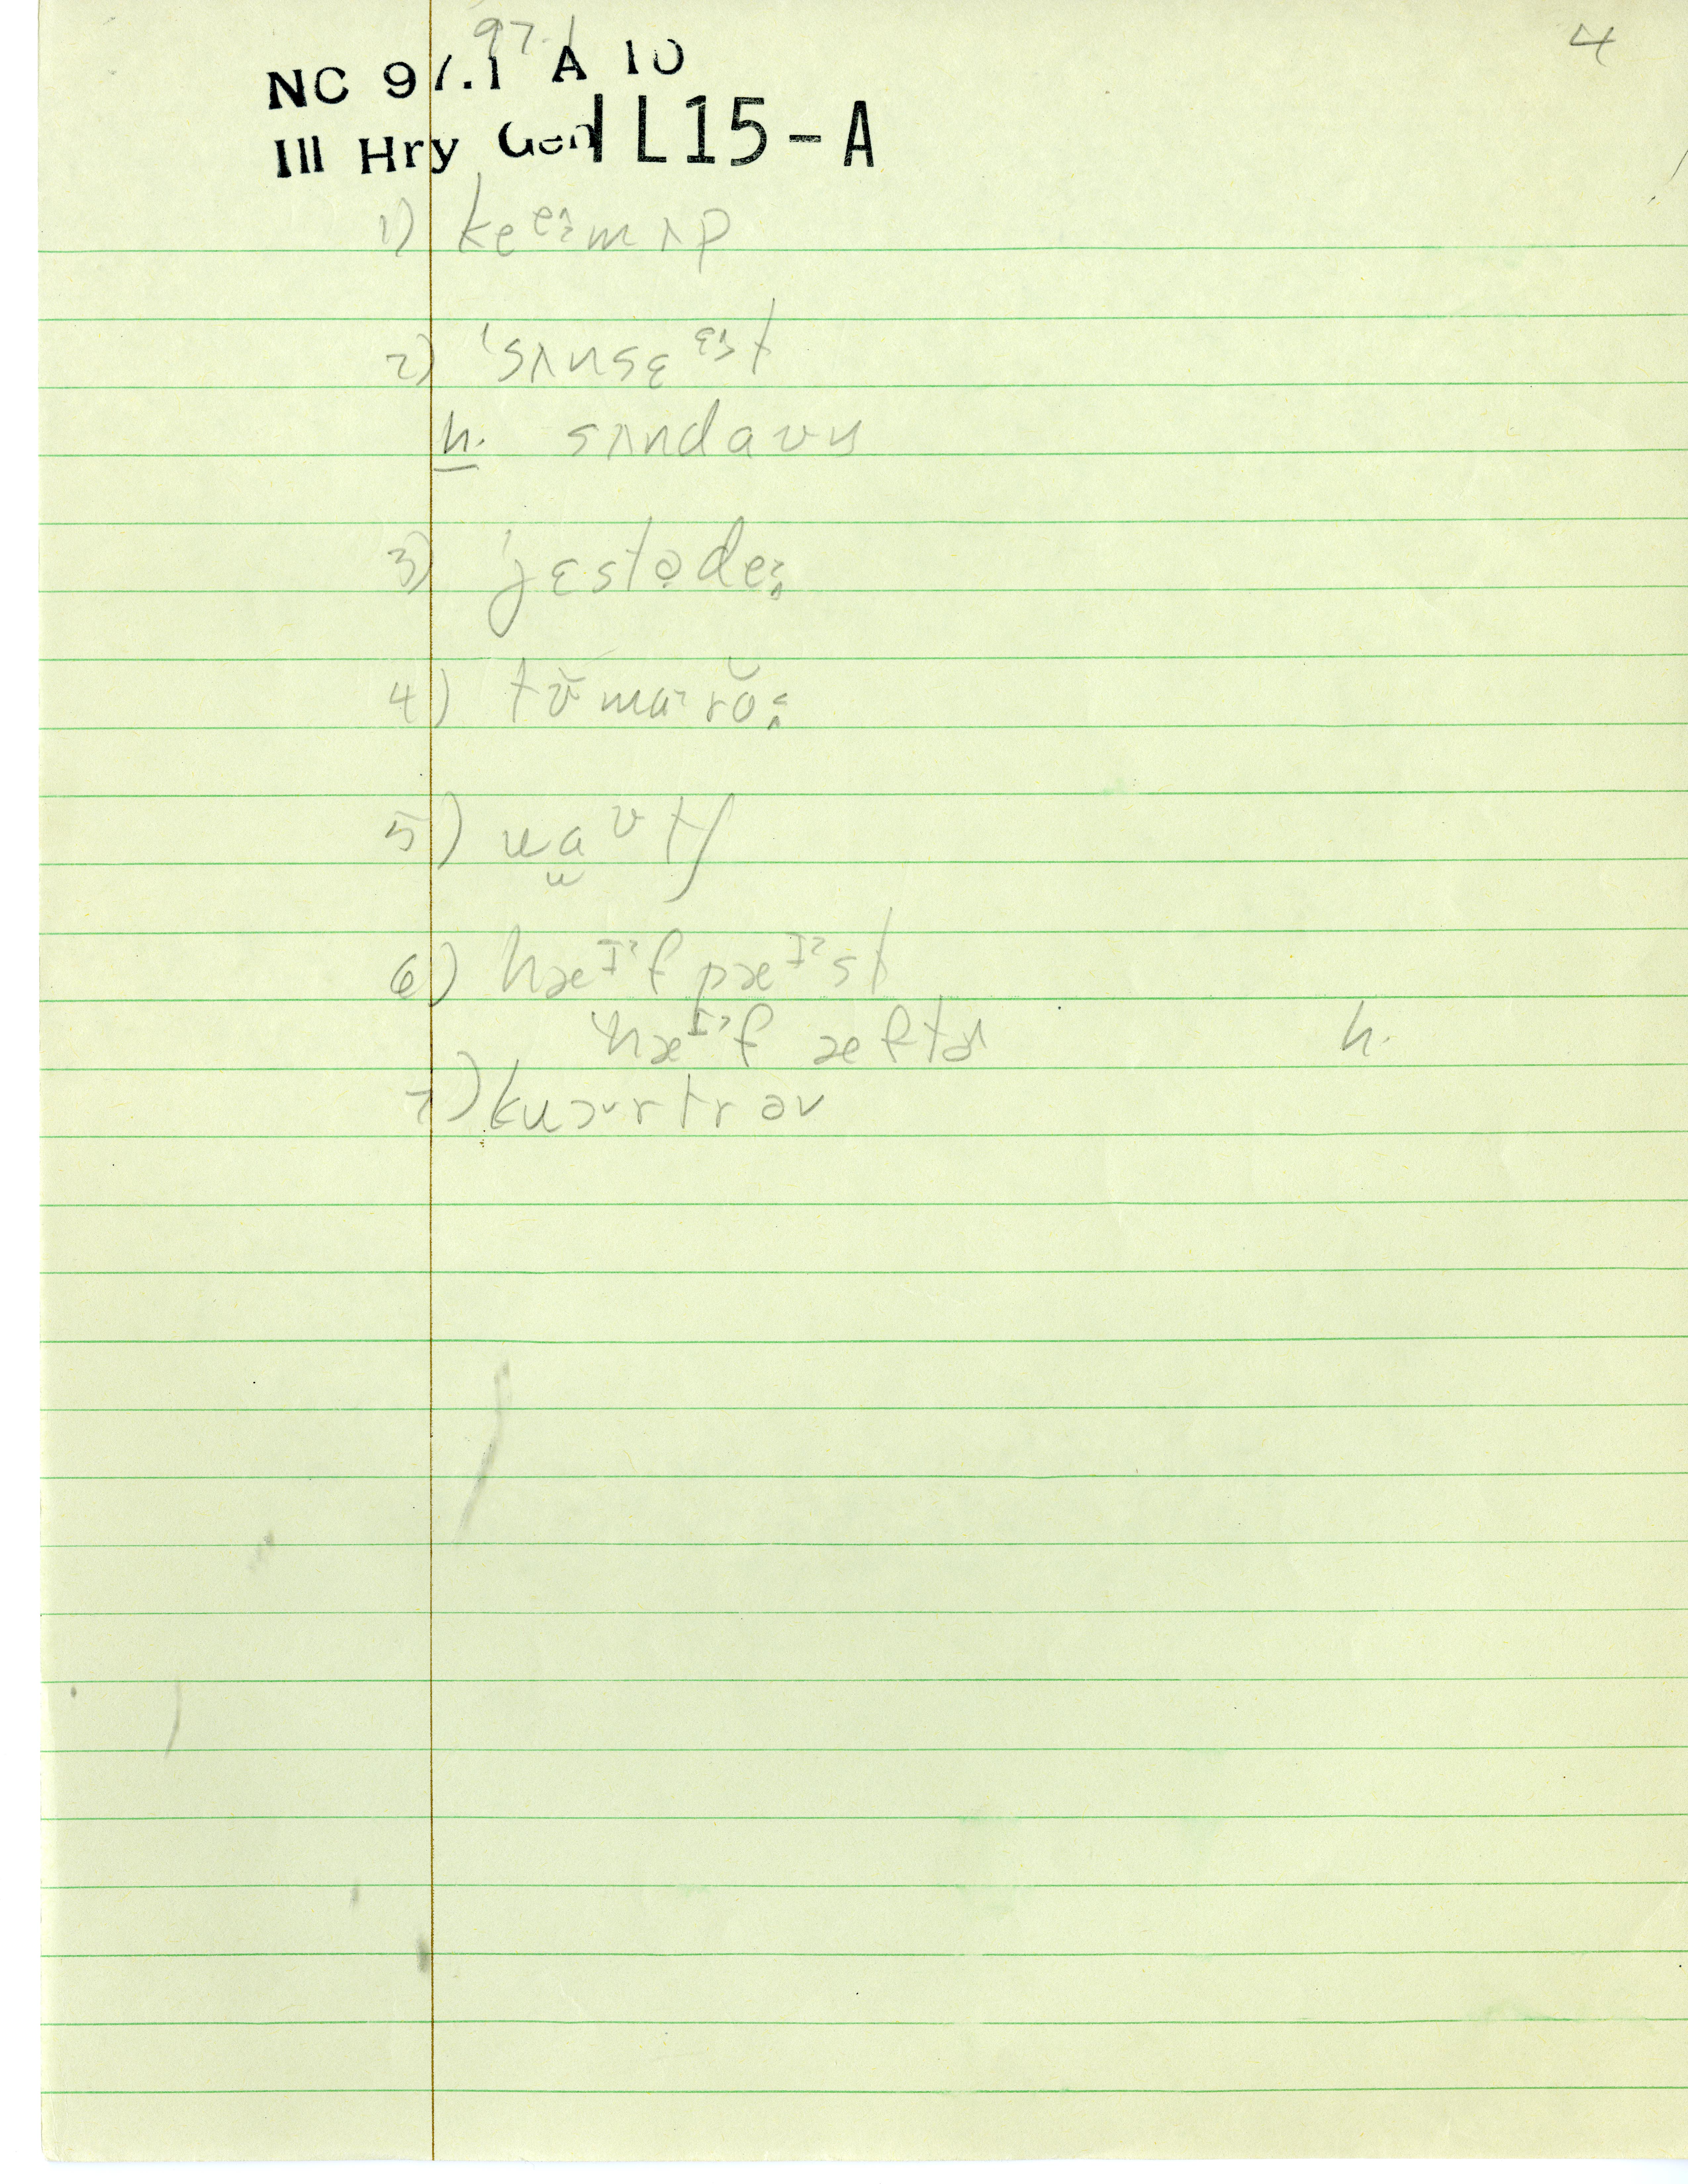 97.1
4
NC 97.1 A 10
Ill Hry Gen IL15-A
1) keᵉ˔mʌp
2) ˈsʌnsɛᵋ˔t
n. sʌndaʊn
3) ˈjɛstədeː
4) tʊ̆maˑrŏː
5) waᶷtʃ
6) hæᴵˑf pæᴵˑst
hæᴵˑf æftɚ
n.
7) kwɔˑrtrəv